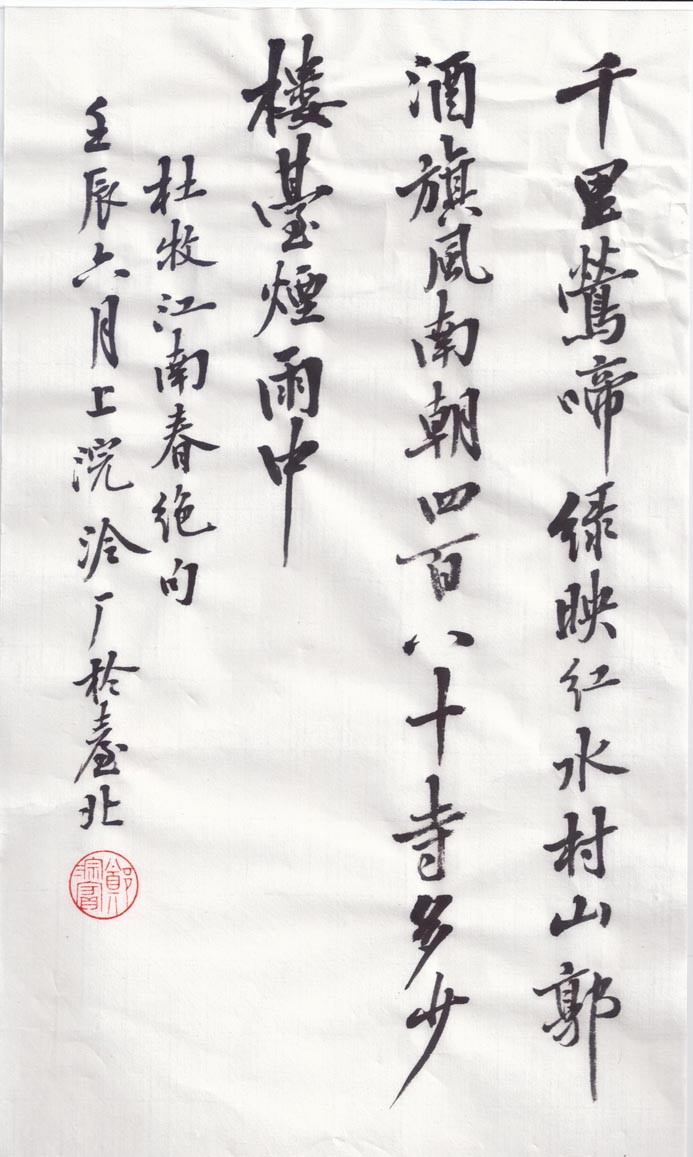 千里鶯啼綠映紅水村山郭
酒旗風南朝四百八十寺多少
樓臺煙雨中
杜牧江南春絕句
壬辰六月上浣泠厂於臺北
鄭宗富